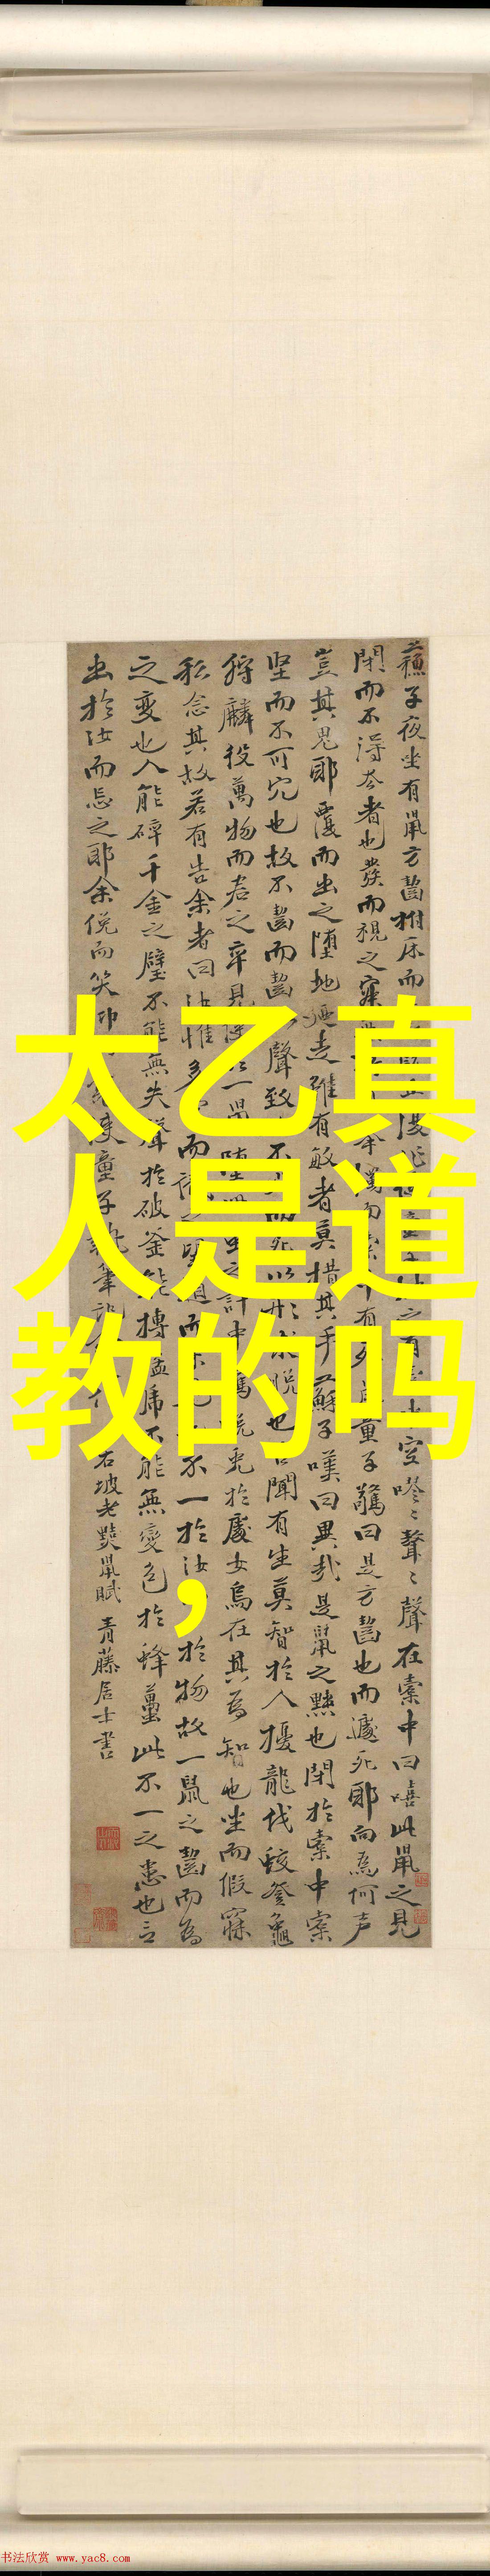 太乙真
人是道
教的吗
，
蘇子夜坐有鼠方齧拊床而止復作使童子燭之有橐中空嘐〻聱〻聲在橐中曰嘻此鼠之見
閉而不得去者也發而視之寂舉燭而索中有死鼠童子驚曰是方齧也而遽死耶向為何声
豈其鬼耶覆而出之墮地廼走雖有敏者莫措其手蘇子嘆曰異哉是鼠之黠也閉於橐中橐
坚而不可穴也故不齧而齧以聲致不死而死以形求脫也吾聞有生莫智於人擾龍伐蛟登龜
狩麟役萬物而君之卒見使於一鼠墮此虫之計中驚脫兎於處女烏在其為知也坐而假寐
私念其故若有告余者曰汝惟多而識之望道而未也不一於汝於物故一鼠之齧而為
之變也人能碎千金之璧不能無失聲於破釜能搏猛虎不能無變色於蜂蠆此不一之患也言
出於汝而忘之耶余俛而笑仰使童子執筆記余 右坡老黠鼠賦 青藤居士書
书法欣赏 www.yac8.com